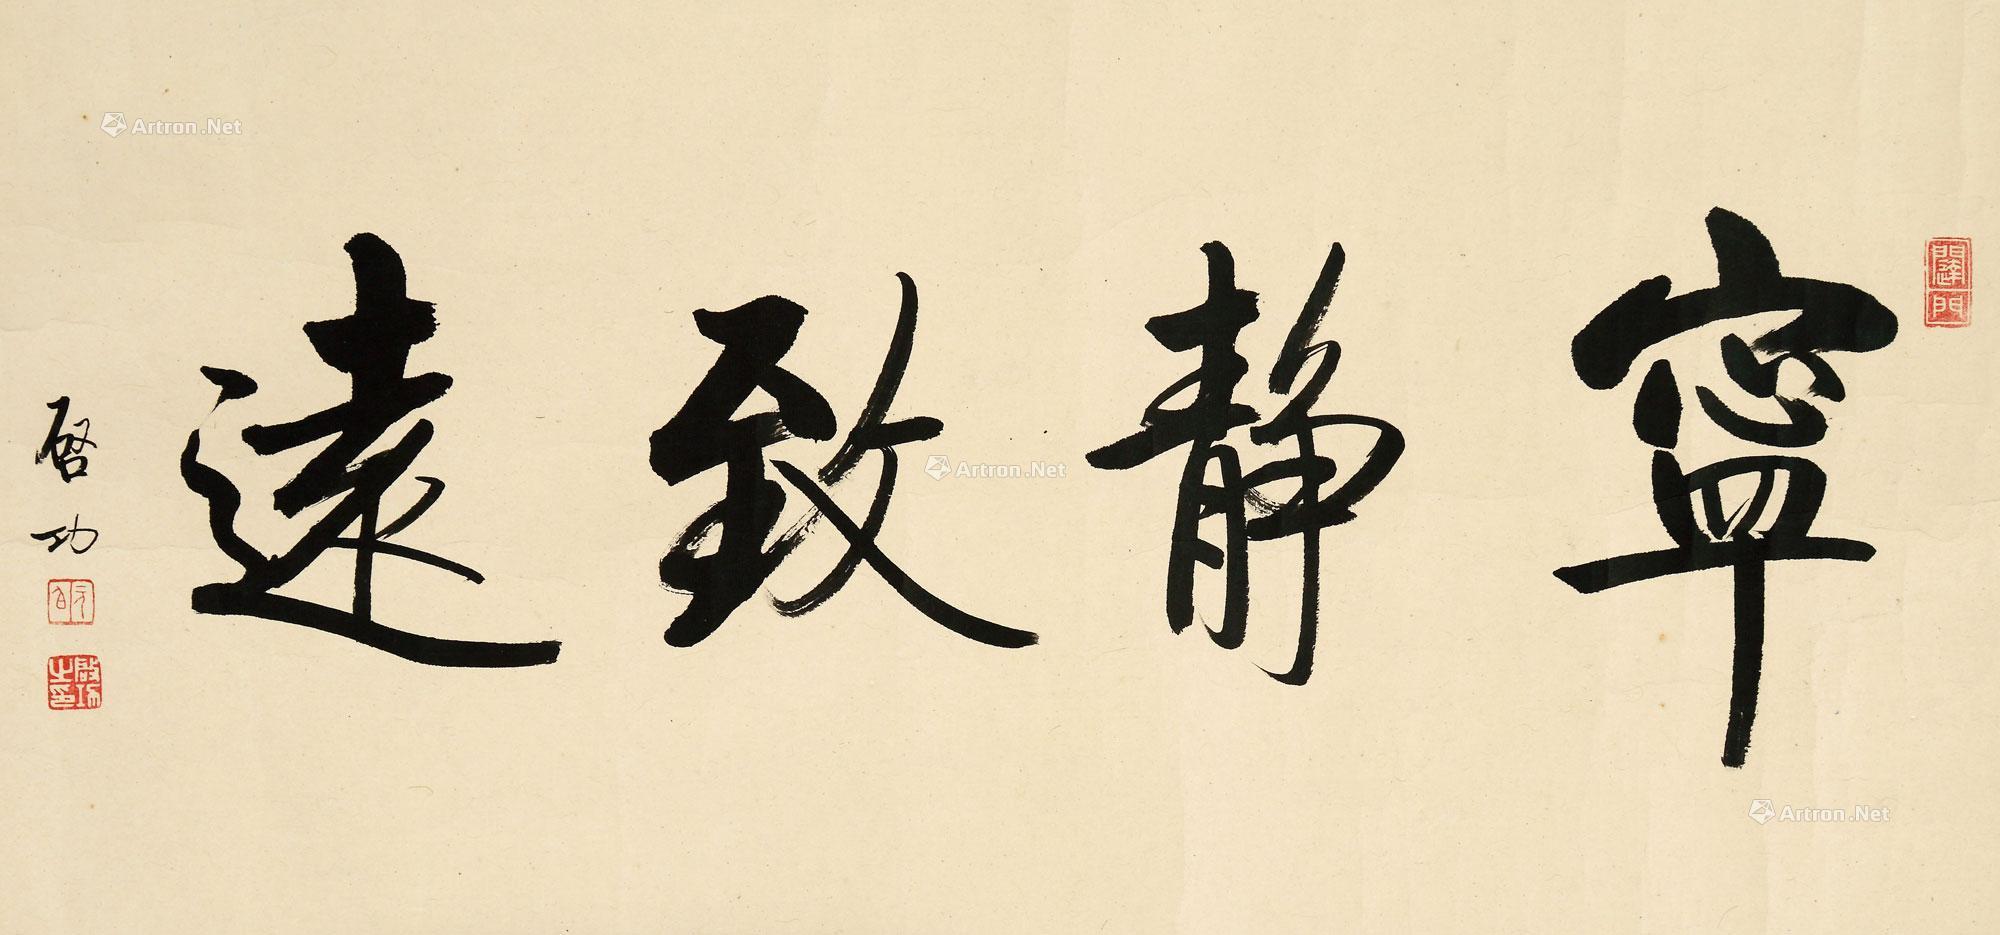 寧靜致遠
啓功
啟功之印
Artron.Net
Artron.Net
Artron.Net